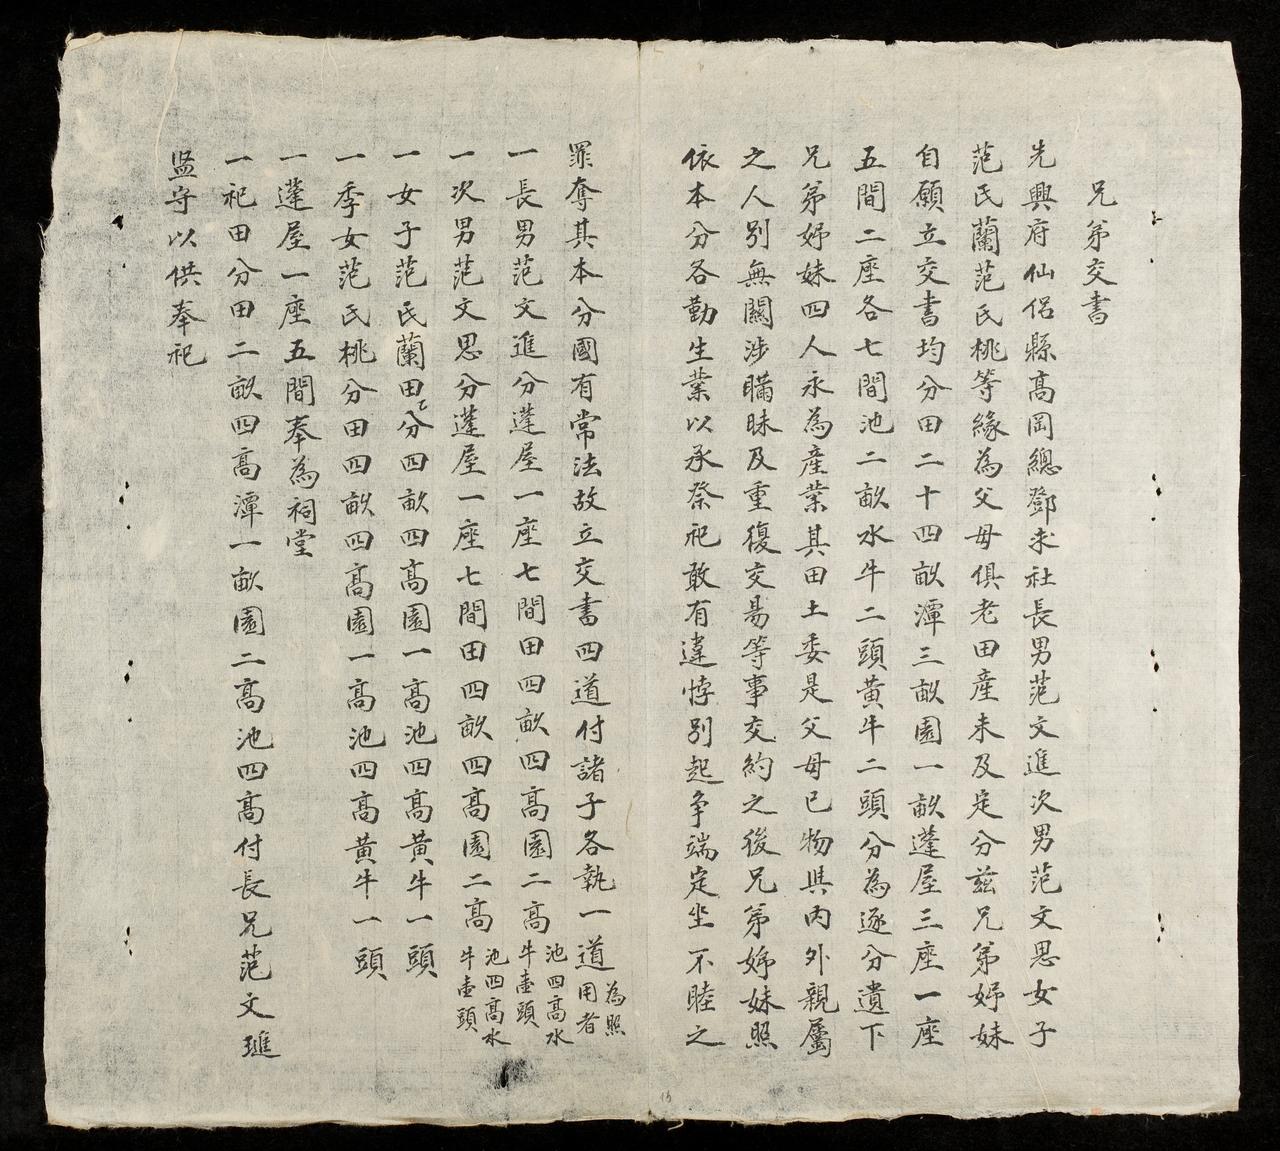 兄弟交書
先興府仙侶縣高岡總鄧求社長男范文進次男范文思女子
范氏蘭范氏桃等緣為父母俱老田產未及定分茲兄弟姊妹
自願立交書均分田二十四畝潭三畝園一畝蓬屋三座一座
五間二座各七間池二畝水牛二頭黃牛二頭分為逐分遺下
兄弟姊妹四人永為產業其田土委是父母已物與內外親屬
之人別無關涉瞞昧及重復交易等事交約之後兄弟姊妹照
依本分各勤生業以承祭祀敢有違悖別起争端定坐不睦之
罪奪其本分國有常法故立交書四道付諸子各執一道用者為照
一長男范文進分蓬屋一座七間田四畝四高園二高池四高水牛壹頭
一次男范文思分蓬屋一座七間田四畝四高園二高池四高水牛壹頭
一女子范氏蘭田分四畝四高園一高池四高黃牛一頭
一季女范氏桃分田四畝四高園一高池四高黃牛一頭
一蓬屋一座五間奉為祠堂
一祀田分田二畝四高潭一畝園二高池四高付長兄范文進
監守以供奉祀